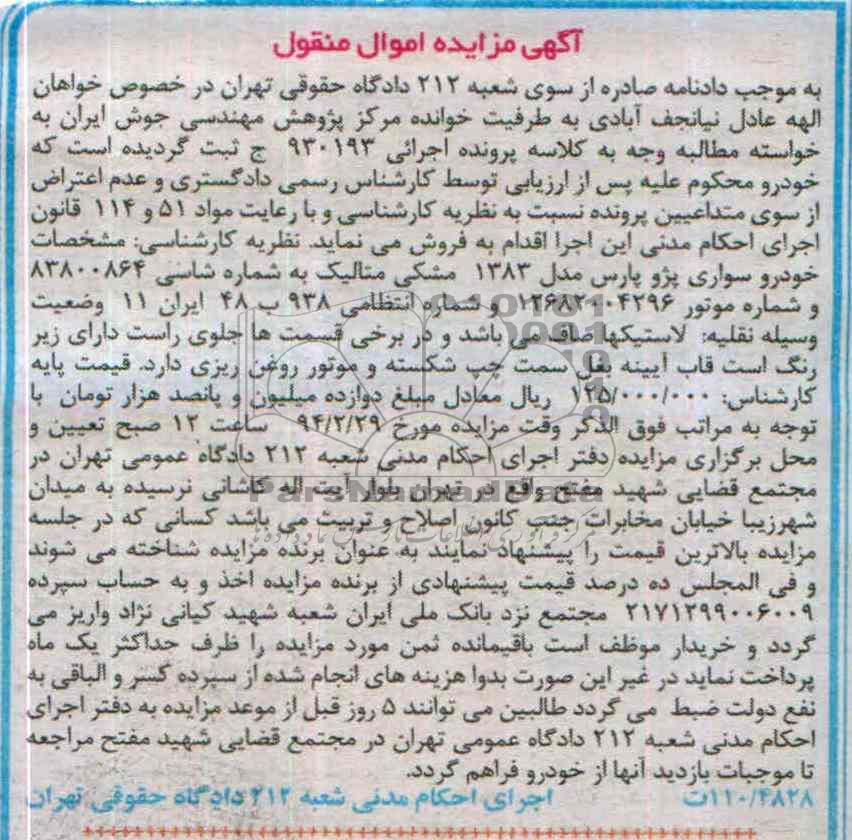 آگهی مزایده اموال منقول
به موجب دادنامه صادره از سوی شعبه ۲۱۲ دادگاه حقوقی تهران در خصوص خواهان
الهه عادل نیانجف آبادی به طرفیت خوانده مرکز پژوهش مهندسی جوش ایران به
خواسته مطالبه وجه به کلاسه پرونده اجرائی ۹۳۰۱۹۳ ج ثبت گردیده است که
خودرو محکوم علیه پس از ارزیابی توسط کارشناس رسمی دادگستری و عدم اعتراض
از سوی متداعیین پرونده نسبت به نظریه کارشناسی و با رعایت مواد ۵۱ و ۱۱۴ قانون
اجرای احکام مدنی این اجرا اقدام به فروش می نماید. نظریه کارشناسی: مشخصات
خودرو سواری پژو پارس مدل ۱۳۸۳ مشکی متالیک به شماره شاسی ۸۳۸۰۰۸۶۴
و شماره موتور و شماره انتظامی ۹۳۸ ب ۴۸ ایران ۱۱ وضعیت
وسیله نقلیه: لاستیکها صاف می باشد و در برخی قسمت ها جلوی راست دارای زیر
رنگ است قاب آیینه بغل سمت چپ شکسته و موتور روغن ریزی دارد. قیمت پایه
کارشناس: ۱۲۵/۰۰۰/۰۰۰ ریال معادل مبلغ دوازده میلیون و پانصد هزار تومان با
توجه به مراتب فوق الذکر وقت مزایده مورخ ۹۴/۲/۲۹ ساعت ۱۲ صبح تعیین و
محل برگزاری مزایده دفتر اجرای احکام مدنی شعبه ۲۱۲ دادگاه عمومی تهران در
مجتمع قضایی شهید مفتح واقع در تهران بلوار آیت اله کاشانی نرسیده به میدان
شهرزیبا خیابان مخابرات جنب کانون اصلاح و تربیت می باشد کسانی که در جلسه
مزایده بالاترین قیمت را پیشنهاد نمایند به عنوان برنده مزایده شناخته می شوند
و فی المجلس ده درصد قیمت پیشنهادی از برنده مزایده اخذ و به حساب سپرده
۲۱۷۱۲۹۹۰۰۶۰۰۹ مجتمع نزد بانک ملی ایران شعبه شهید کیانی نژاد واریز می
گردد و خریدار موظف است باقیمانده ثمن مورد مزایده را ظرف حداکثر یک ماه
پرداخت نماید در غیر این صورت بدوا هزینه های انجام شده از سپرده کسر و الباقی به
نفع دولت ضبط می گردد طالبین می توانند ۵ روز قبل از موعد مزایده به دفتر اجرای
احکام مدنی شعبه ۲۱۲ دادگاه عمومی تهران در مجتمع قضایی شهید مفتح مراجعه
تا موجبات بازدید آنها از خودرو فراهم گردد.
۱۱۰/۴۸۲۸ت اجرای احکام مدنی شعبه ۲۱۲ دادگاه حقوقی تهران
ParsNamadData